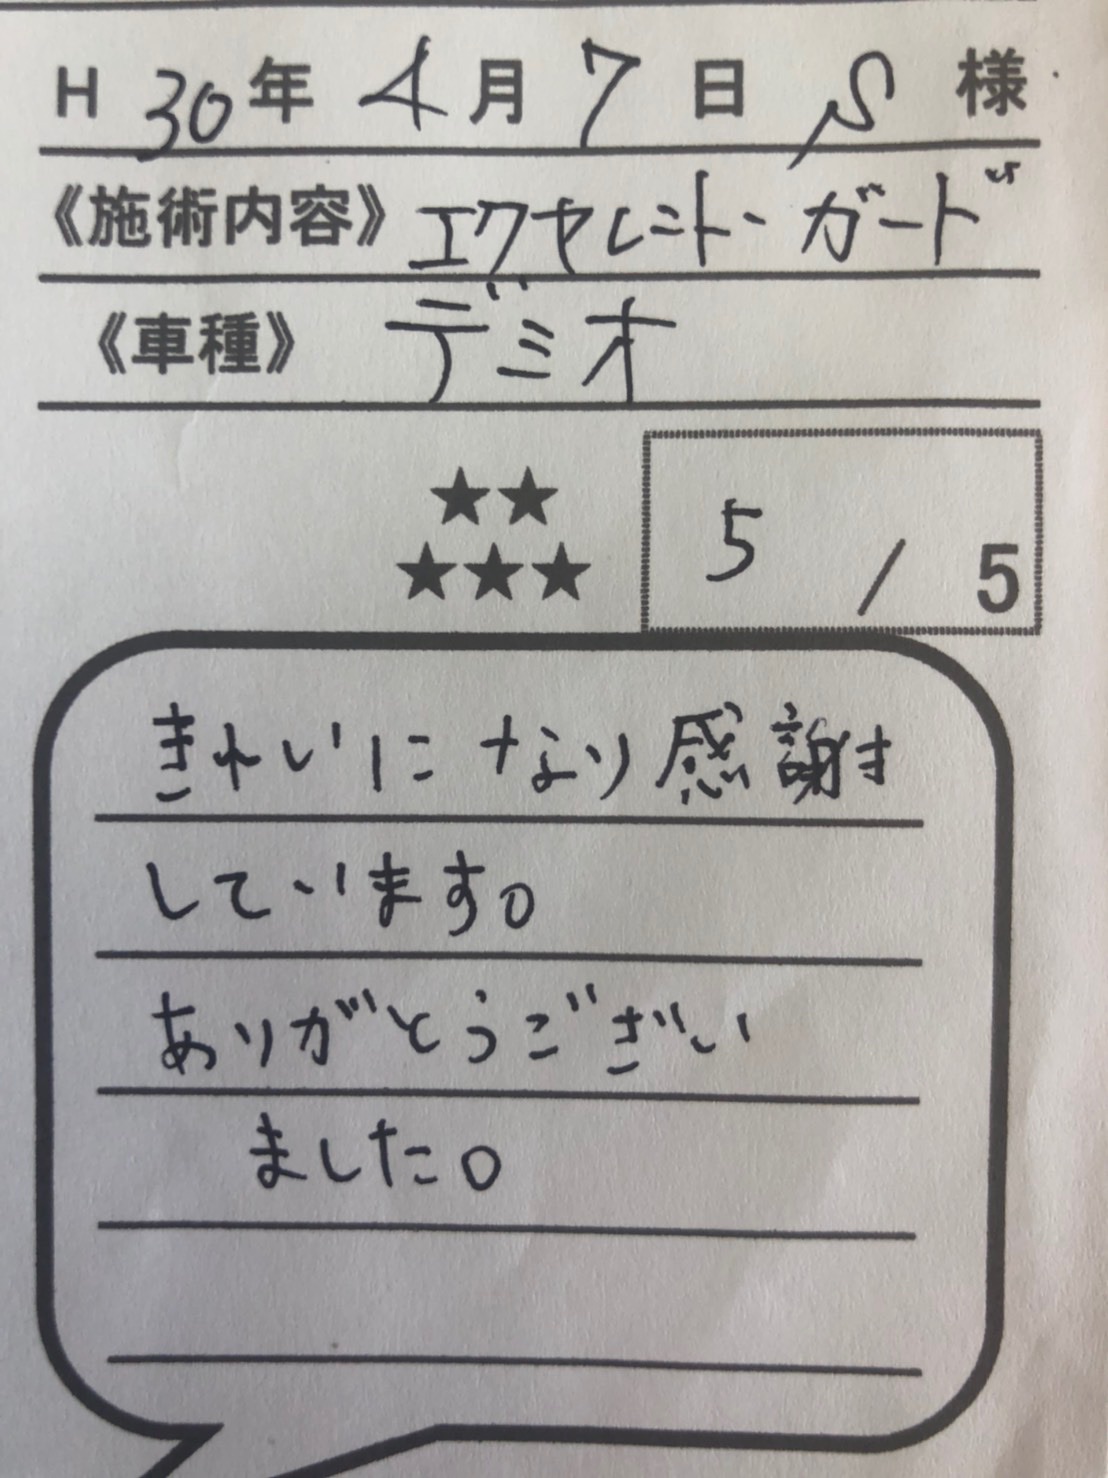 H 30年 4月 7日 S 様
《施術内容》エクセレント・ガード
《車種》 デミオ
★★
★★★
5 / 5
きれいになり感謝
しています。
ありがとうござい
ました。